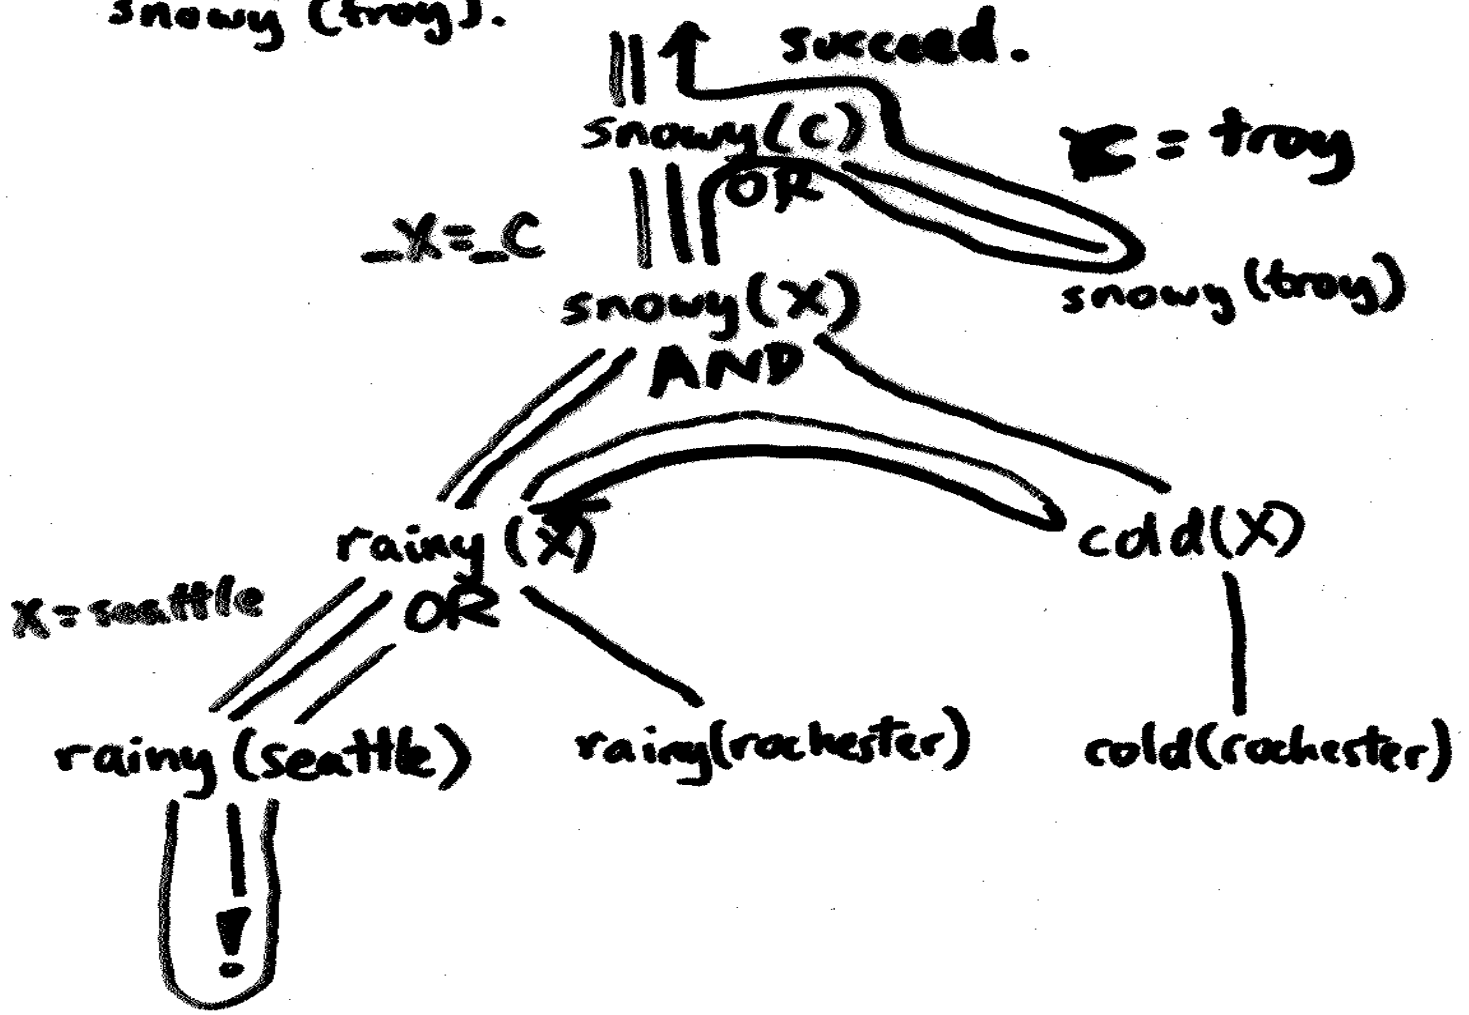 snowy (troy).
succeed.
snowy(C)
C = troy
OR
_X=_C
snowy(troy)
snowy(X)
AND
rainy(X)
cold(X)
X=seattle
OR
rainy(seattle)
rainy(rochester)
cold(rochester)
!